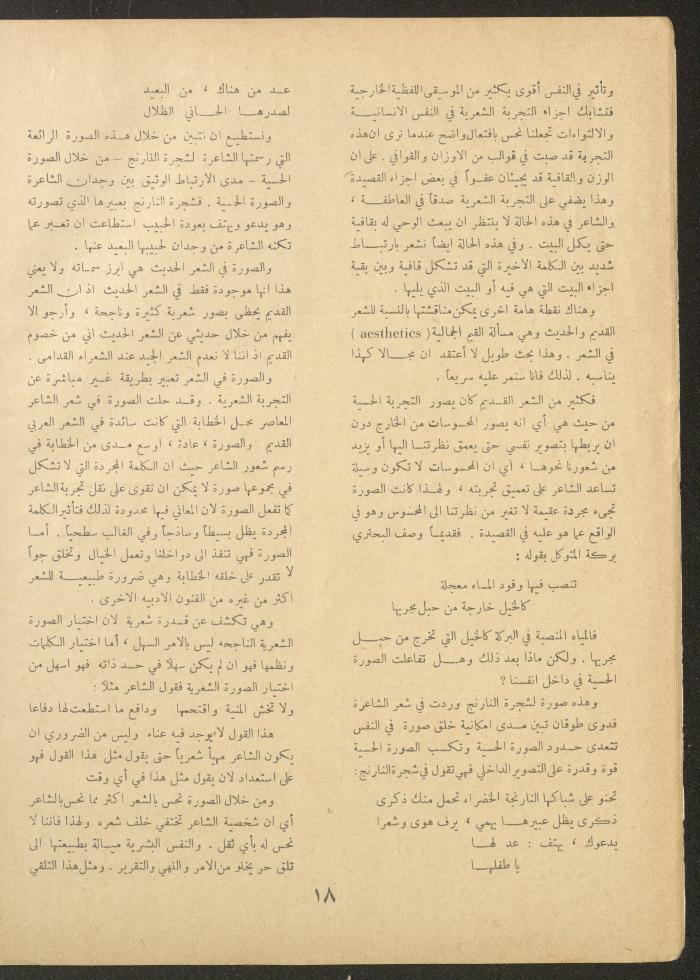 وتأثير في النفس أقوى بكثير من الموسيقى اللفظية الخارجية
فتشابك اجزاء التجربة الشعرية في النفس الانسانيـــة
والالتواءات تجعلنا نحس بافتعال واضح عندما نرى ان هذه
التجربة قد صبت في قوالب من الاوزان والقوافي . على ان
الوزن والقافية قد يجيئان عفـواً في بعض اجزاء القصيدة
وهذا يضفي على التجربة الشعرية صدقاً في العاطفـة ،
والشاعر في هذه الحالة لا ينتظر ان يبعث الوحي له بقافية
حتى يكمل البيت . وفي هذه الحالة ايضاً نشعر بارتبـــاط
شديد بين الكلمة الاخيرة التي قد تشكل قافية وبين بقية
اجزاء البيت التي هي فيه أو البيت الذي يليها .
وهناك نقطة هامة اخرى يمكن مناقشتها بالنسبة للشعر
القديم والحديث وهي مسألة القيم الجمالية ( aesthetics )
في الشعر . وهذا بحث طويل لا أعتقد ان مجـالا كهذا
يناسبه . لذلك فانا سنمر عليه سريعاً .
فكثير من الشعر القديم كان يصور التجربة الحسية
من حيث هي أي انه يصور المحسوسات من الخارج دون
ان يربطها بتصوير نفسي حتى يعمق نظرتنـا اليها أو يزيد
من شعورنا نحوهـا ، أي ان المحسوسات لا تكون وسيلة
تساعد الشاعر على تعميق تجربته ، ولهـذا كانت الصورة
تجيء مجردة عقيمة لا تغير من نظرتنا الى المحسوس وهو في
الواقع عما هو عليه في القصيدة . فقديمـاً وصف البحتري
بركة المتوكل بقوله :
تنصب فيها وفود المـاء معجلة
كالخيل خارجة من حبل مجريها
فالمياه المنصبة في البركة كالخيل التي تخرج من حبـــل
مجريها . ولكن ماذا بعد ذلك وهـــل تفاعلت الصورة
الحسية في داخل انفسنا ؟
وهذه صورة لشجرة النارنج وردت في شعر الشاعرة
فدوى طوقان تبين مـدى امكانية خلق صورة في النفس
تتعدى حـدود الصورة الحسية وتكسب الصورة الحسية
قوة وقدرة على التصوير الداخلي فهي تقول في شجرة النارنج:
تحنو على شباكها النارنجة الخضراء تحمل منك ذكرى
ذكرى يظل عبيرهـــا يهمي ، يرف هوى وشعرا
يدعوك ، يهتف : عد لهـا
يا طفلهـــا
عـد من هناك ، من البعيد
لصدرهـــا الحـــاني الظلال
ونستطيع ان نتبين من خلال هـذه الصورة الرائعة
التي رسمتها الشاعرة لشجرة النارنج – من خلال الصورة
الحسية – مدى الارتباط الوثيق بين وجدان الشاعرة
والصورة الحسية . فشجرة النارنج بعبيرها الذي تصورته
وهو يدعو ويهتف بعودة الحبيب استطاعت ان تعـبر عما
تكنه الشاعرة من وجدان لحبيبها البعيد عنها .
والصورة في الشعر الحديث هي ابرز سمـاته ولا يعني
هذا انها موجودة فقط في الشعر الحديث اذ ان الشعر
القديم يحظى بصور شعرية كثيرة وناجحة ، وأرجو الا
يفهم من خلال حديثي عن الشعر الحديث اني من خصوم
القديم اذ اننا لا نعدم الشعر الجيد عند الشعراء القدامى .
والصورة في الشعر تعبير بطريقة غـير مباشرة عن
التجربة الشعرية . وقـد حلت الصورة في شعر الشاعر
المعاصر محـل الخطابة التي كانت سائدة في الشعر العربي
القديم والصورة ، عادة ، اوسع مـدى من الخطابة في
رسم شعور الشاعر حيث ان الكلمة المجردة التي لا تشكل
في مجموعها صورة لا يمكن ان تقوى على نقل تجربة الشاعر
كما تفعل الصورة لان المعاني فيها محدودة لذلك فتأثير الكلمة
المجردة يظل بسيطاً وساذجاً وفي الغالب سطحياً . أمـا
الصورة فهي تنفذ الى دواخلنا وتعمل الخيال وتخلق جواً
لا تقدر على خلقه الخطابة وهي ضرورة طبيعيـــة للشعر
اكثر من غيره من الفنون الادبيه الاخرى .
وهي تكشف عن قـدرة شعرية لان اختيار الصورة
الشعرية الناجحه ليس بالامر السهل ، أما اختيار الكلمات
ونظمها فهو ان لم يكن سهلا في حـد ذاته فهو اسهل من
اختيار الصورة الشعرية فقول الشاعر مثلا :
ولا تخش المنية واقتحمها ودافع ما استطعت لها دفاعا
هذا القول لا يوجد فيه عناء وليس من الضروري ان
يكون الشاعر مهيأ شعرياً حتى يقول مثل هذا القول فهو
على استعداد لان يقول مثل هذا في أي وقت
ومن خلال الصورة نحس بالشعر اكثر مما نحس بالشاعر
أي ان شخصية الشاعر تختفي خلف شعره ولهذا فاننا لا
نحس له بأي ثقل . والنفس البشرية ميـالة بطبيعتها الى
تلق حر يخلو من الامر والنهي والتقرير . ومثل هذا التلقي
١٨